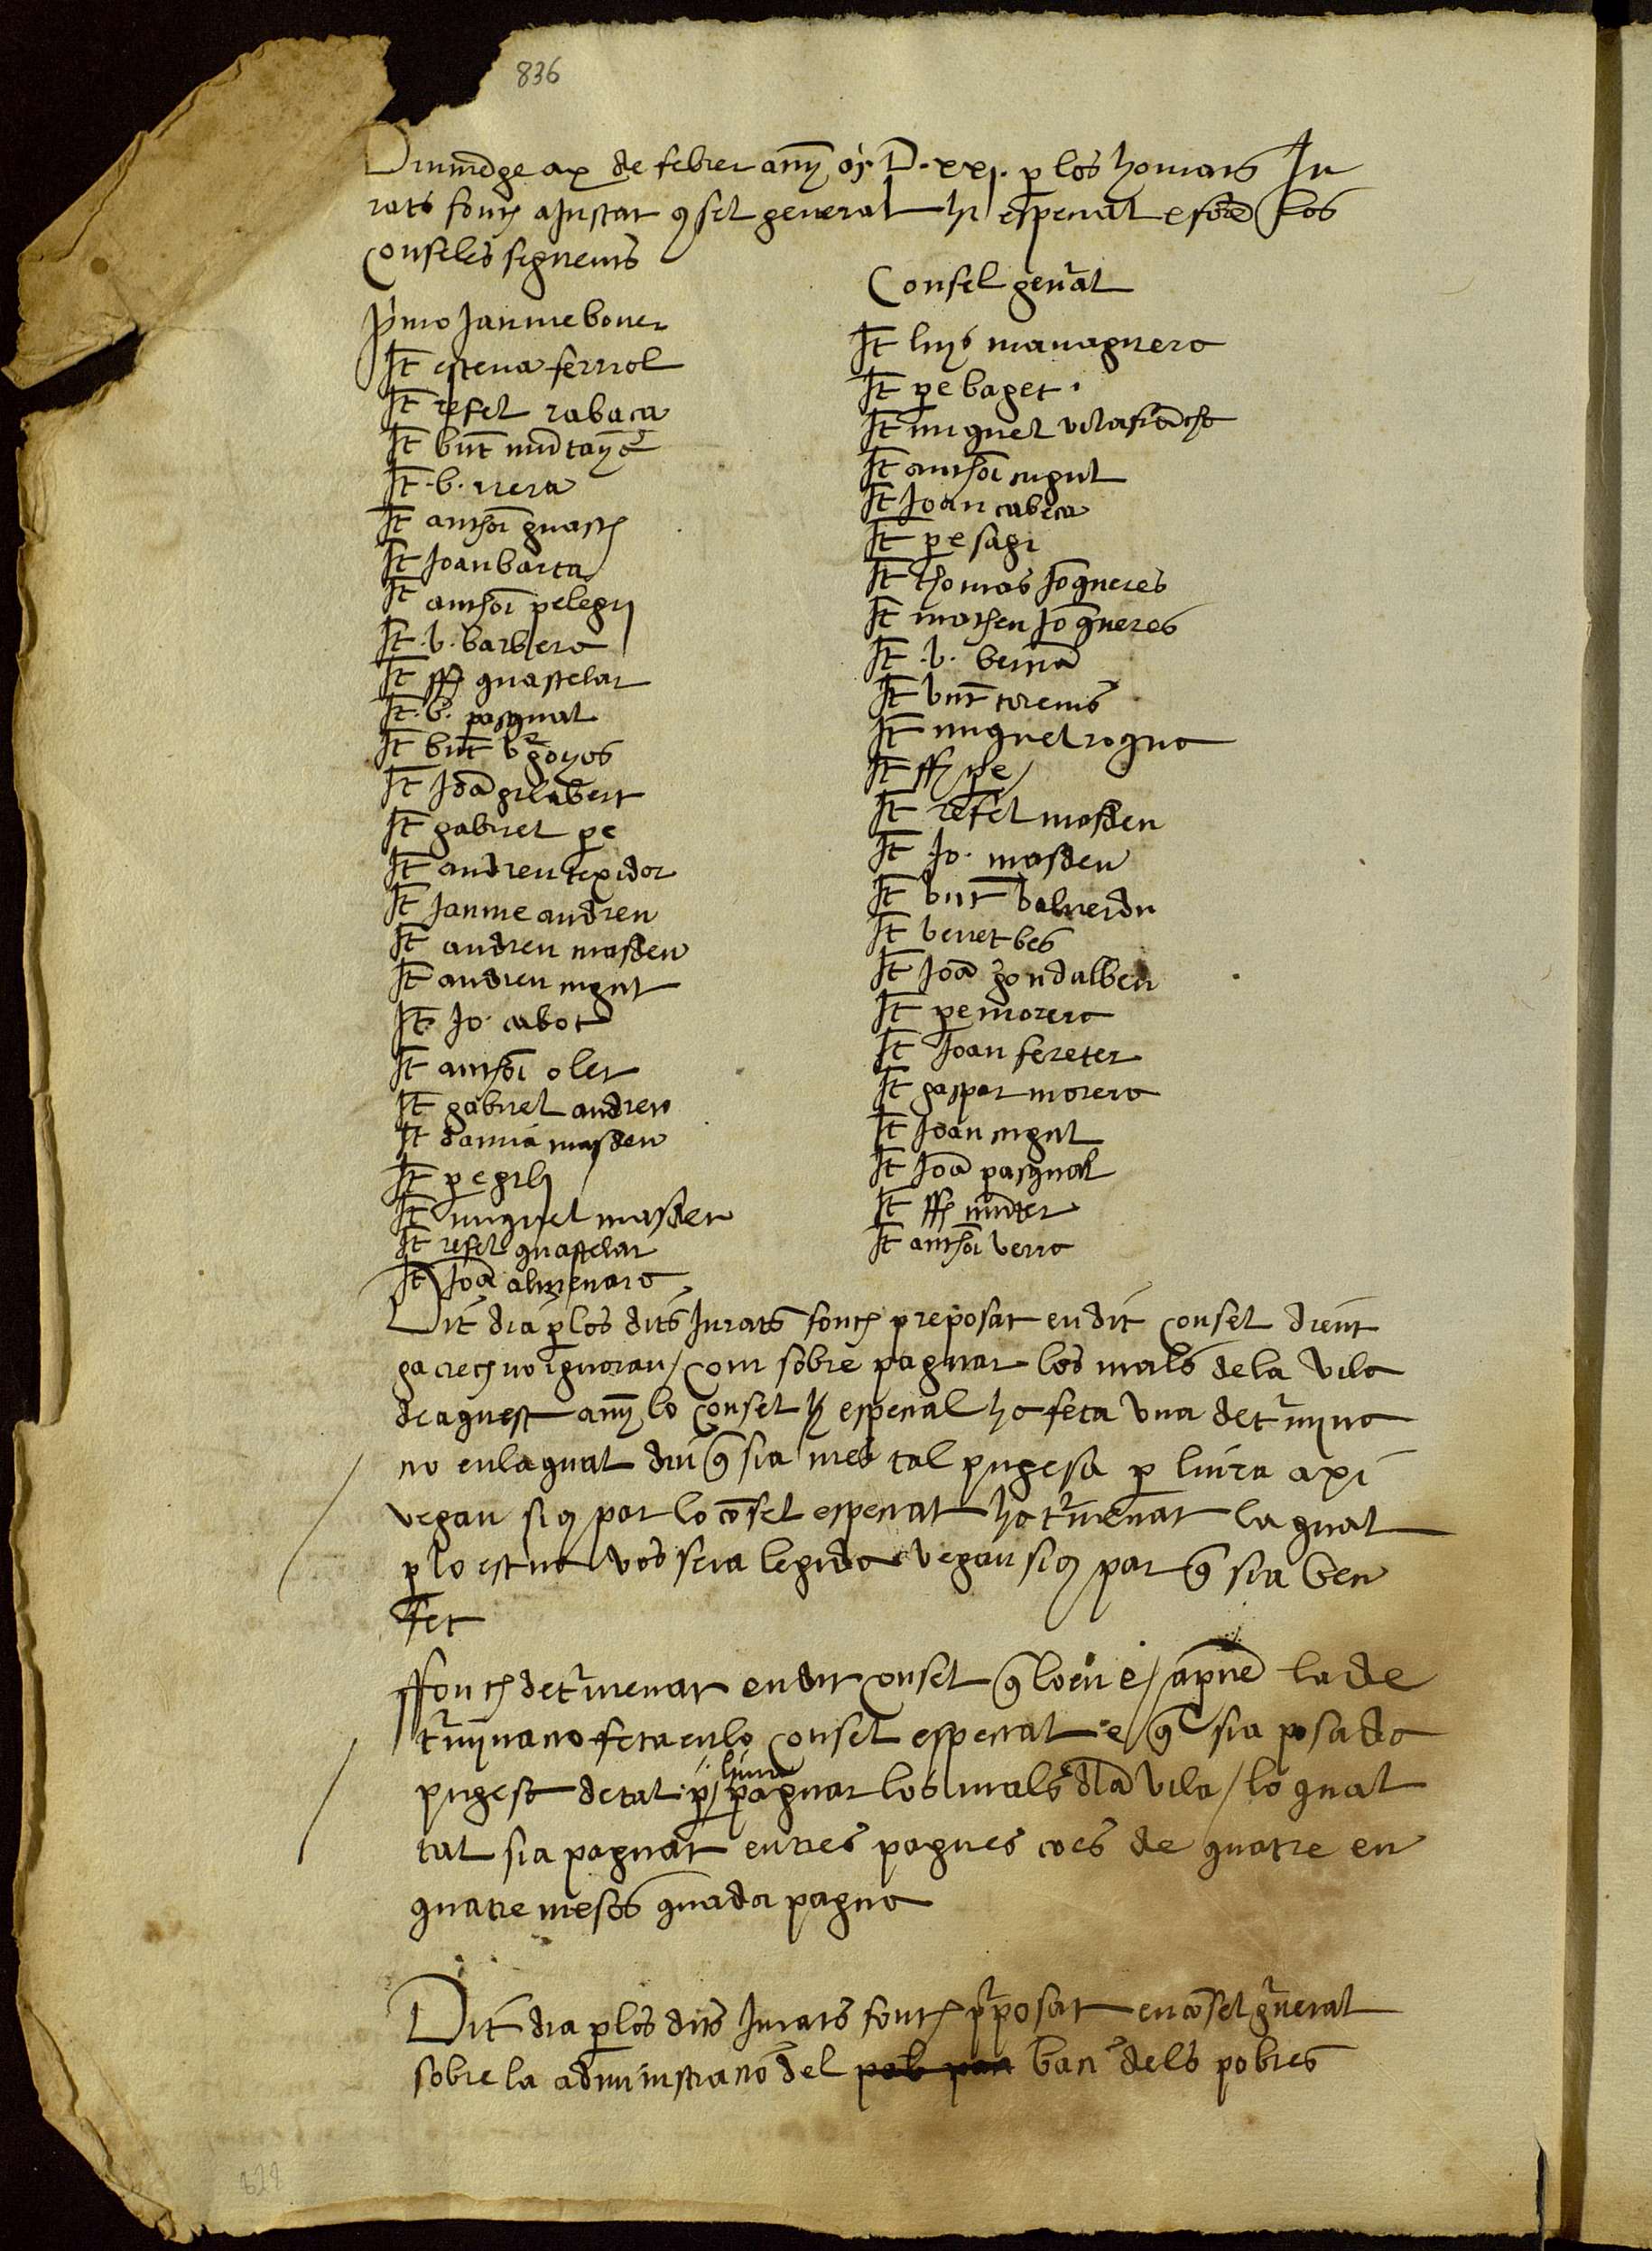 836
Diumēge a x de febrer anȳ M D·xxj· p los honrats Ju
rats fonch aJustat ꝯsel general hi espetial e forē los
Conseles seguents
Pͥmo Jaume bover
It esteva ferriol
It refel rabaca
It bnt mūtanye
It ·b· riera
It anthoī guasch
It Joan barta
It anthoī pelegrj
It ·b· barbera
It ff guastelar
It ·b· pasqual
It bnt bͬgoyos
It Joā gilabert
It gabriel pe
It andreu texidor
It Jaume andreu
It andreu masdeu
It andreu nigul
It Jo· cabot
It anthoī oler
It gabriel andreu
It damia masdeu
It pe gilj
It miquel masdeu
It refel guastelar
It Joā almenara
Consel genͬal
It luys managuera
It pe baget ·
It miquel vilafrācha
It anthoī nigul
It Joan cabeca
It pe sagi
It thomas Joqueres
It matheu Joqueres
It ·b· bernā
It bnt torents
It miquel rogua
It ff pe
It refel masdeu
It Jo· masdeu
It bnt valverdu
It benet bes
It Joā gondalbeu
It pe morera
It Joan fereter
It gaspar morera
It Joan nigul
It Joā pasqual
It ff mūter
It anthoī verra
Dit dia p los dits Jurats fonch preposat en dit consel dient
ga crech no ignoran / com sobre paguar los mals de la vila
de aquest anȳ lo consel hi espetial ha feta una detͬmina
tio en la qual diu q̄ sia mes tal pugesa p liura axi
vegan si ꝯ par lo cōsel espetial ha tͬmenat la qual
p lo escriva vos sera legida vegan si ꝯ par q̄ sia ben
fet
ffonch detͬmenat en dit consel q̄ loen e / aprieē la de
tͬminatio feta en lo consel espetial e q̄ sia posada
pugesa de tal p / liura paguar los mals dla vila / lo qual
tal sia paguat en tres pagues ço es de quatre en
quatre mesos quada pagua
Dit dia p los dits Jurats fonch pͬposat en cōsel gͬneral
sobre la administratio del pob pan baci dels pobres